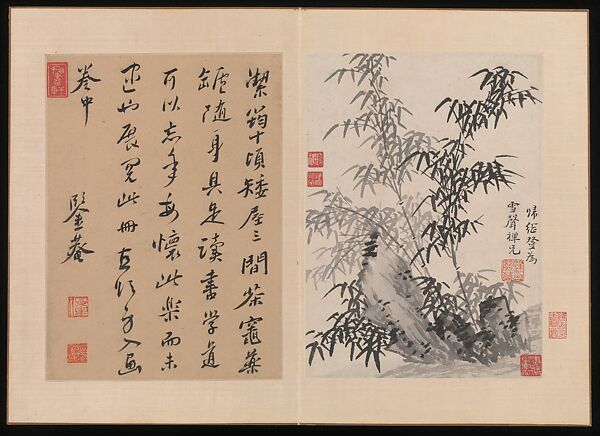 筠十頃矮屋三間茶竈藥
鑪隨身具足讀書學道
可以忘年每懷此樂而未
逮也展閱此冊直欲身入畫
卷中
鑒菴
歸継登為
雪聲禪兄